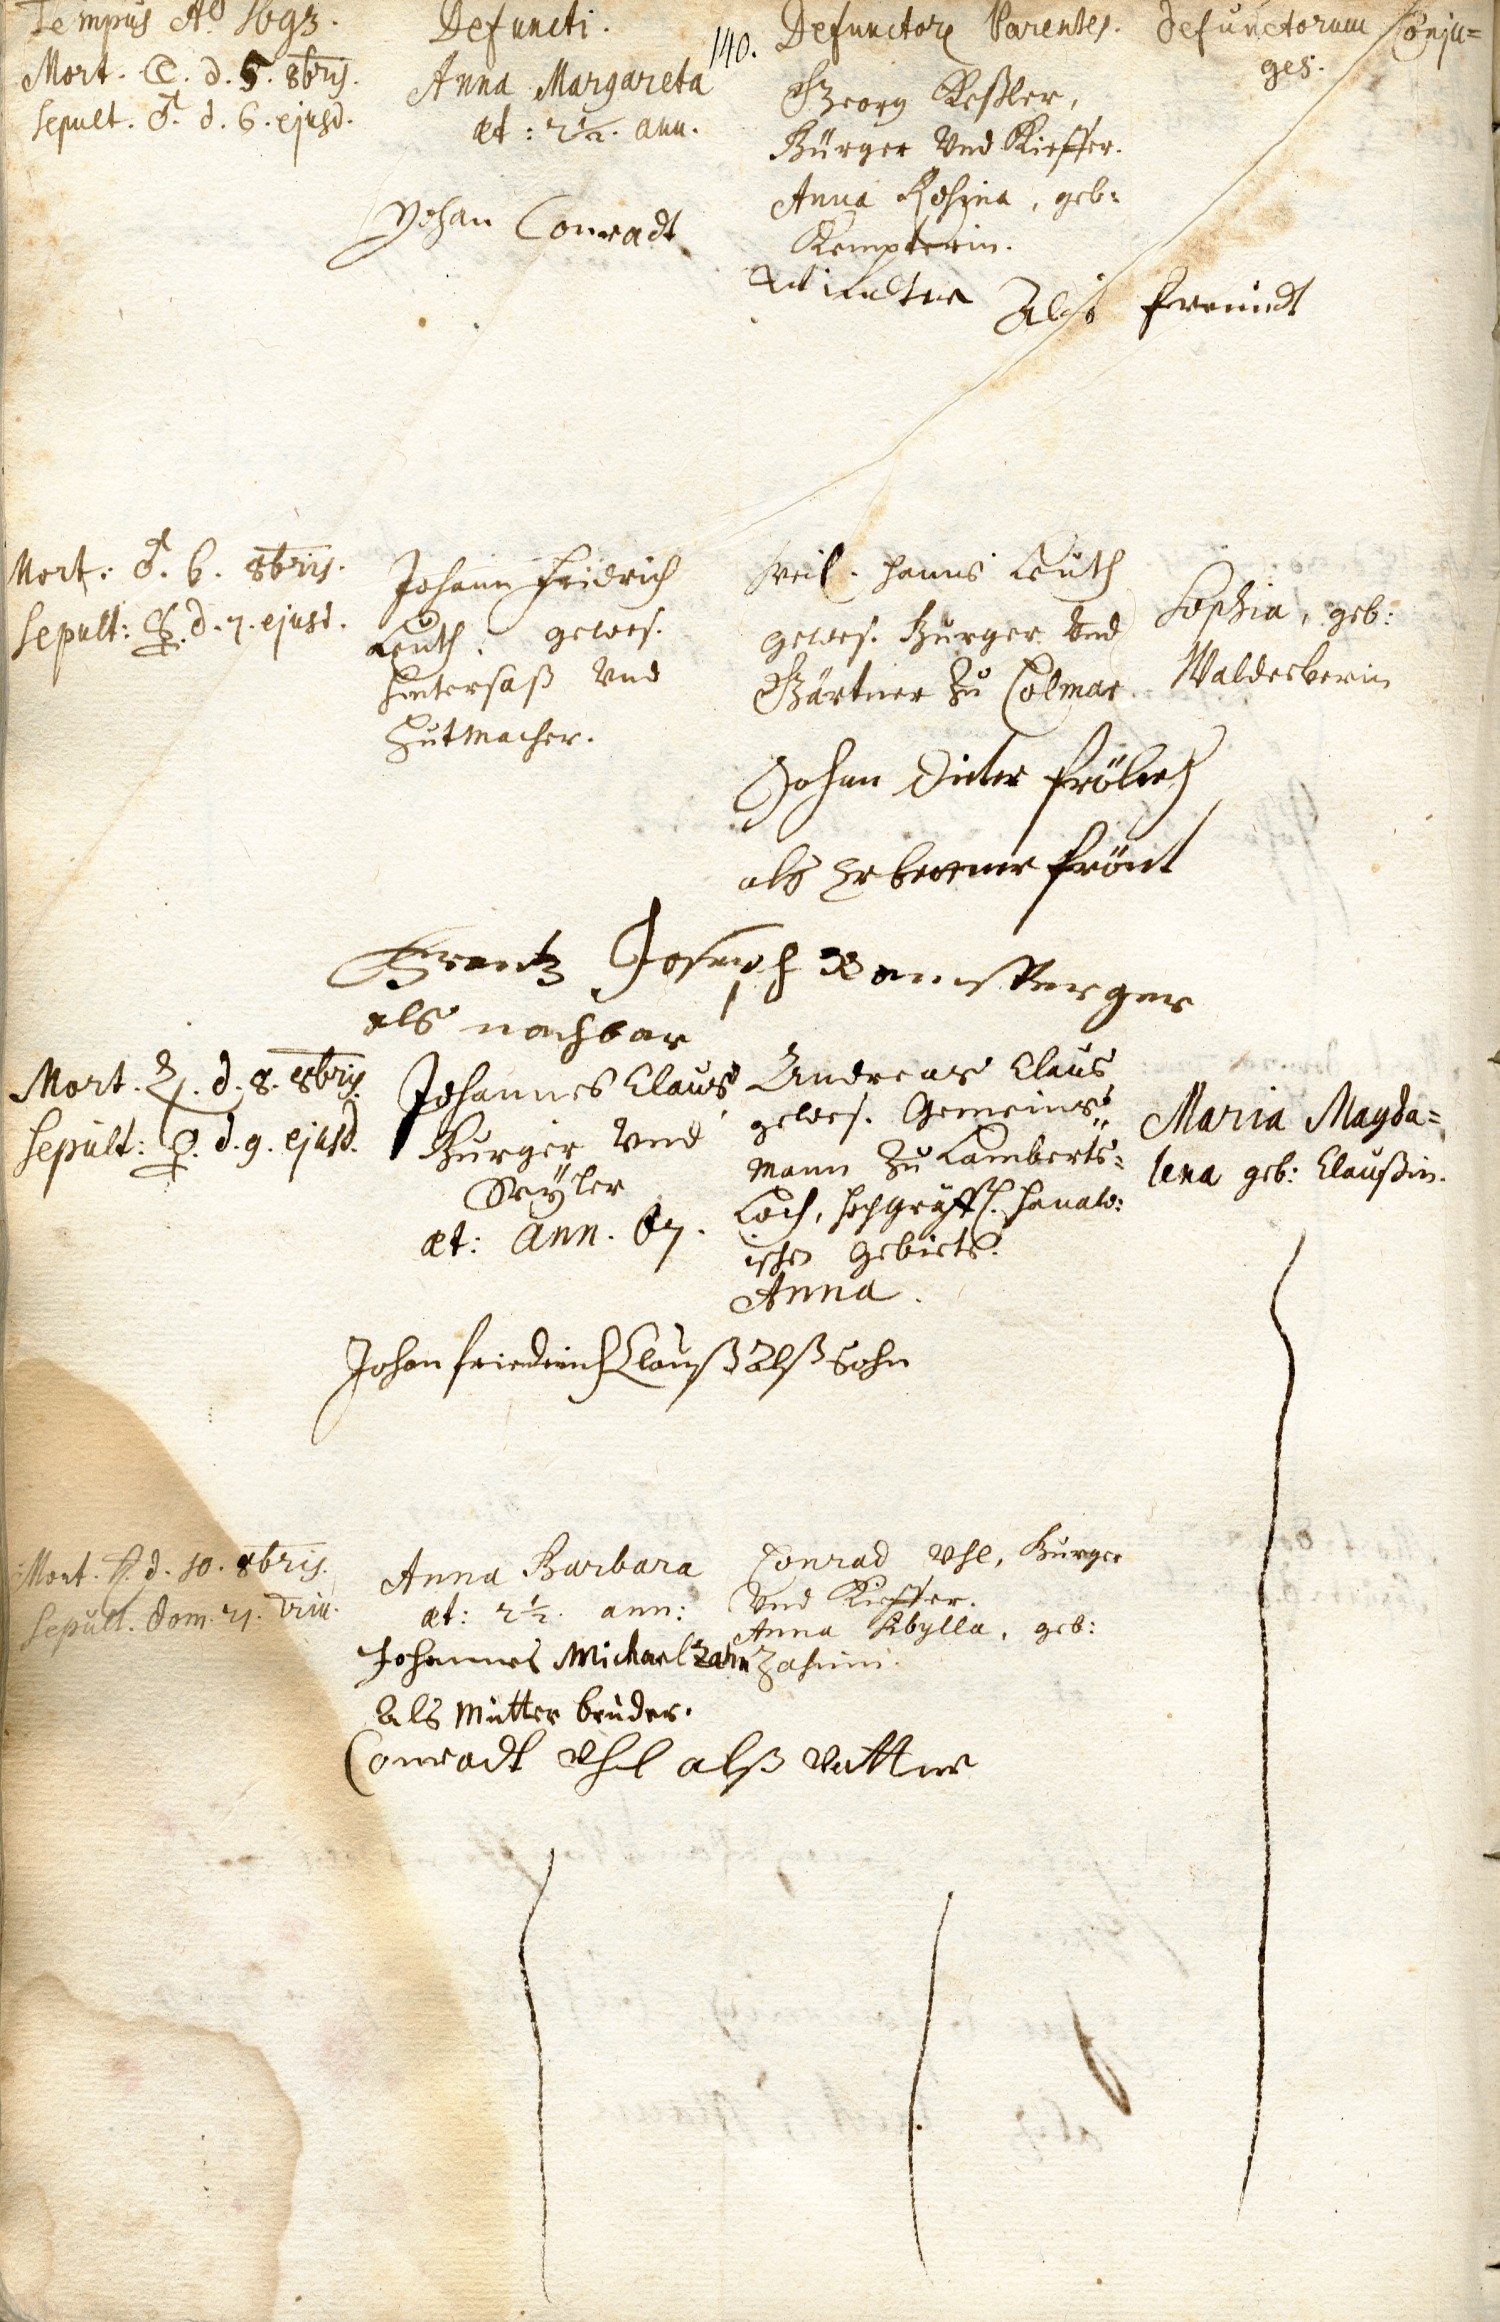 Tempus Aõ 1693.
Defuncti.
140.
Defunctorũ Parentes.
Defunctorum Conju=
ges.
Mort. ☾. d. 5. 8bris.
Sepult. ♂. d. 6. ejusd.
Anna Margareta
æt: 2½. ann.
Georg Keßler,
Bürger Vnd Kieffer.
Anna Rosina, geb:
Kempterin.
Johan Conradt
Alß freundt
Mort: ♂. 6. 8bris.
Sepult: ☿. d. 7. ejusd.
Johann Fridrich
Leuth. gewes.
Hintersaß Vnd
Hutmacher.
Weil. Hanns Leuth
gewes. Burger Vnd
Gärtner Zu Colmar
Sophia, geb:
Johan Dieter frölich
als Erbettener frönt
Frantz Joseph
als nachbar
Mort. ♃. d. 8. 8bris.
Sepult: ♀. d. 9. ejusd.
Johannes Claus
Burger Vnd
Seyler
æt: ann. 67.
Andreas Claus
gewes. Gemeins=
mann Zu Lamberts=
Loch, hochgräffl. Hanaw:
ischen Gebiets.
Anna.
Maria Magda=
lena geb: Claußin.
Johan friedrich Clauß Alß Sohn
Mort. ♄. d. 10. 8bris.
Sepult. Dom. 21. Trin.
Anna Barbara
æt: 2½. ann:
Conrad Vhl, Burger
Vnd Kieffer.
Anna Sibylla, geb:
Zahnin.
Johannes Michael Zahn
Als Mutter bruder.
Conradt Vhl alß Vatter